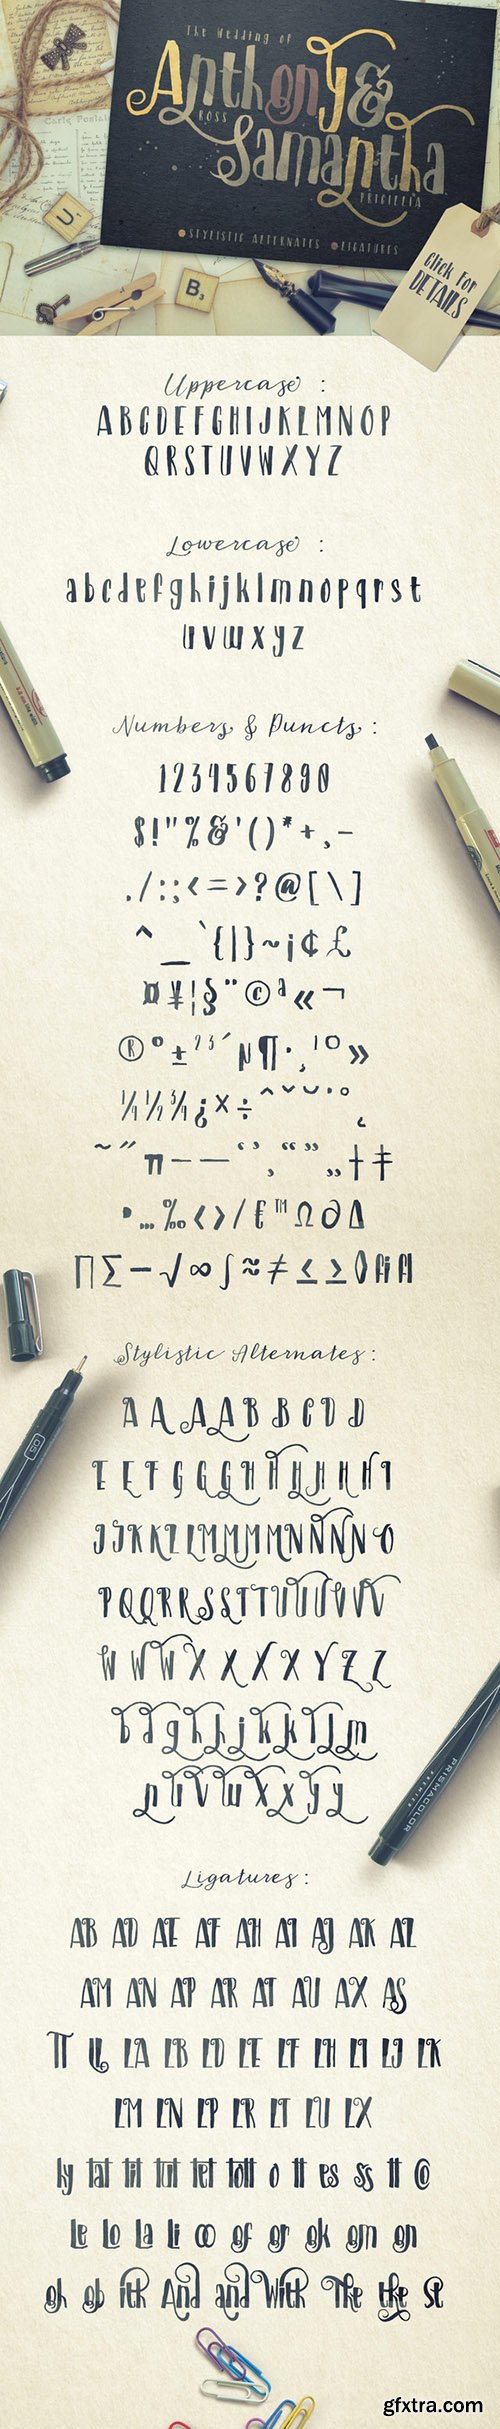 The Wedding of
Anthony &
ROSS
Samantha
PRICILLIA
STYLISTIC ALTERNATES LIGATURES
Click For
DETAILS
Carte Postale
U
B3
Uppercase :
A B C D E F G H I J K L M N O P
Q R S T U V W X Y Z
Lowercase :
a b c d e f g h i j k l m n o p q r s t
u v w x y z
Numbers & Puncts :
1 2 3 4 5 6 7 8 9 0
$ ! " % & ' ( ) * + , -
. / : ; < = > ? @ [ \ ]
^ _ ` { | } ~ ¡ ¢ £
¤ ¥ ¦ § ¨ © ª « ¬
® ° ± ² ³ ´ µ ¶ · ¸ ¹ º »
¼ ½ ¾ ¿ × ÷ ˆ ˇ ˘ ˙ ˚ ˛
˜ ˝ π – — ‘ ’ ‚ “ ” „ † ‡
• … ‰ ‹ › / € ™ Ω ∂ ∆
∏ ∑ − √ ∞ ∫ ≈ ≠ ≤ ≥ ◊ fi fl
Stylistic Alternates :
A A A A B B C D D
E E F G G G H H H H H H I
J J K K L L M M M M N N N N O
P Q Q R R S S T T U U U V V V
W W W W X X X X X Y Z Z
b d g h h j k k l l m
n u v w x x y y
Ligatures :
AB AD AE AF AH AI AJ AK AL
AM AN AP AR AT AU AX AS
TT LL LA LB LD LE LF LH LI LJ LK
LM LN LP LR LT LU LX
ly tat tit tut tet tott o tt es ss tt @
Le Lo La Li oo of or ok om on
oh ob ith And and With The the st
05
PRISMACOLOR
PREMIER
gfxtra.com